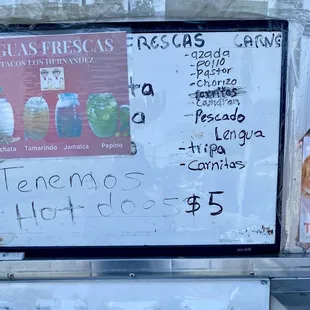 GUAS FRESCAS
TACOS LOS HERNANDEZ
chata Tamarindo Jamaica Pepino
RESCAS CARNE
-azada
-pollo
-pastor
-Chorizo
Pescado
Lengua
-tripa
-Carnitas
Tenemos
Hot dogs $5